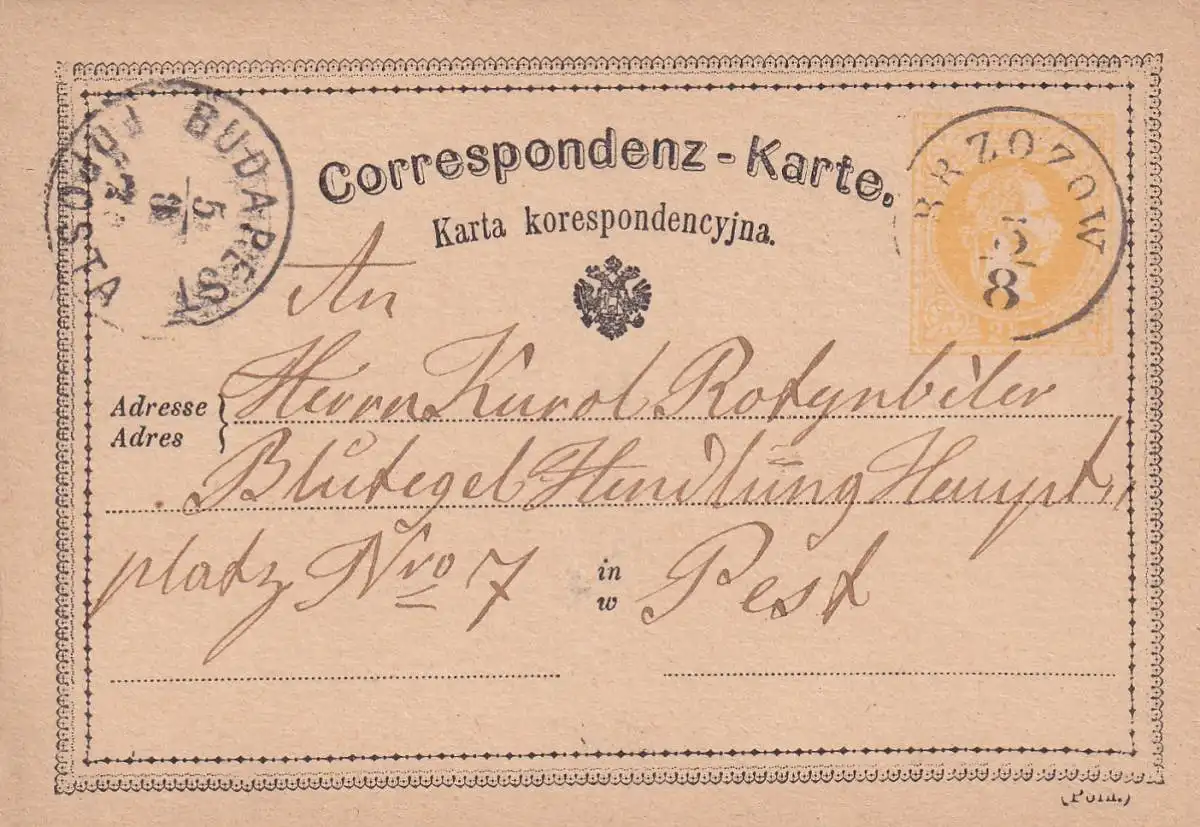 Correspondenz-Karte.
Karta korespondencyjna.
BUDAPEST
5
8
BRZOZOW
5
8
An
Adresse
Adres
Herrn Karol Rotgnbiler
Blutegel Handlung Haupt
platz Nro 7
in
w
Pest
(Poln.)